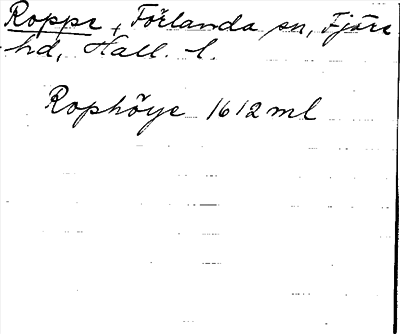 Roppe, Förlanda sn, Fjäre
hd, Hall. l.
Rophöye 1612 ml